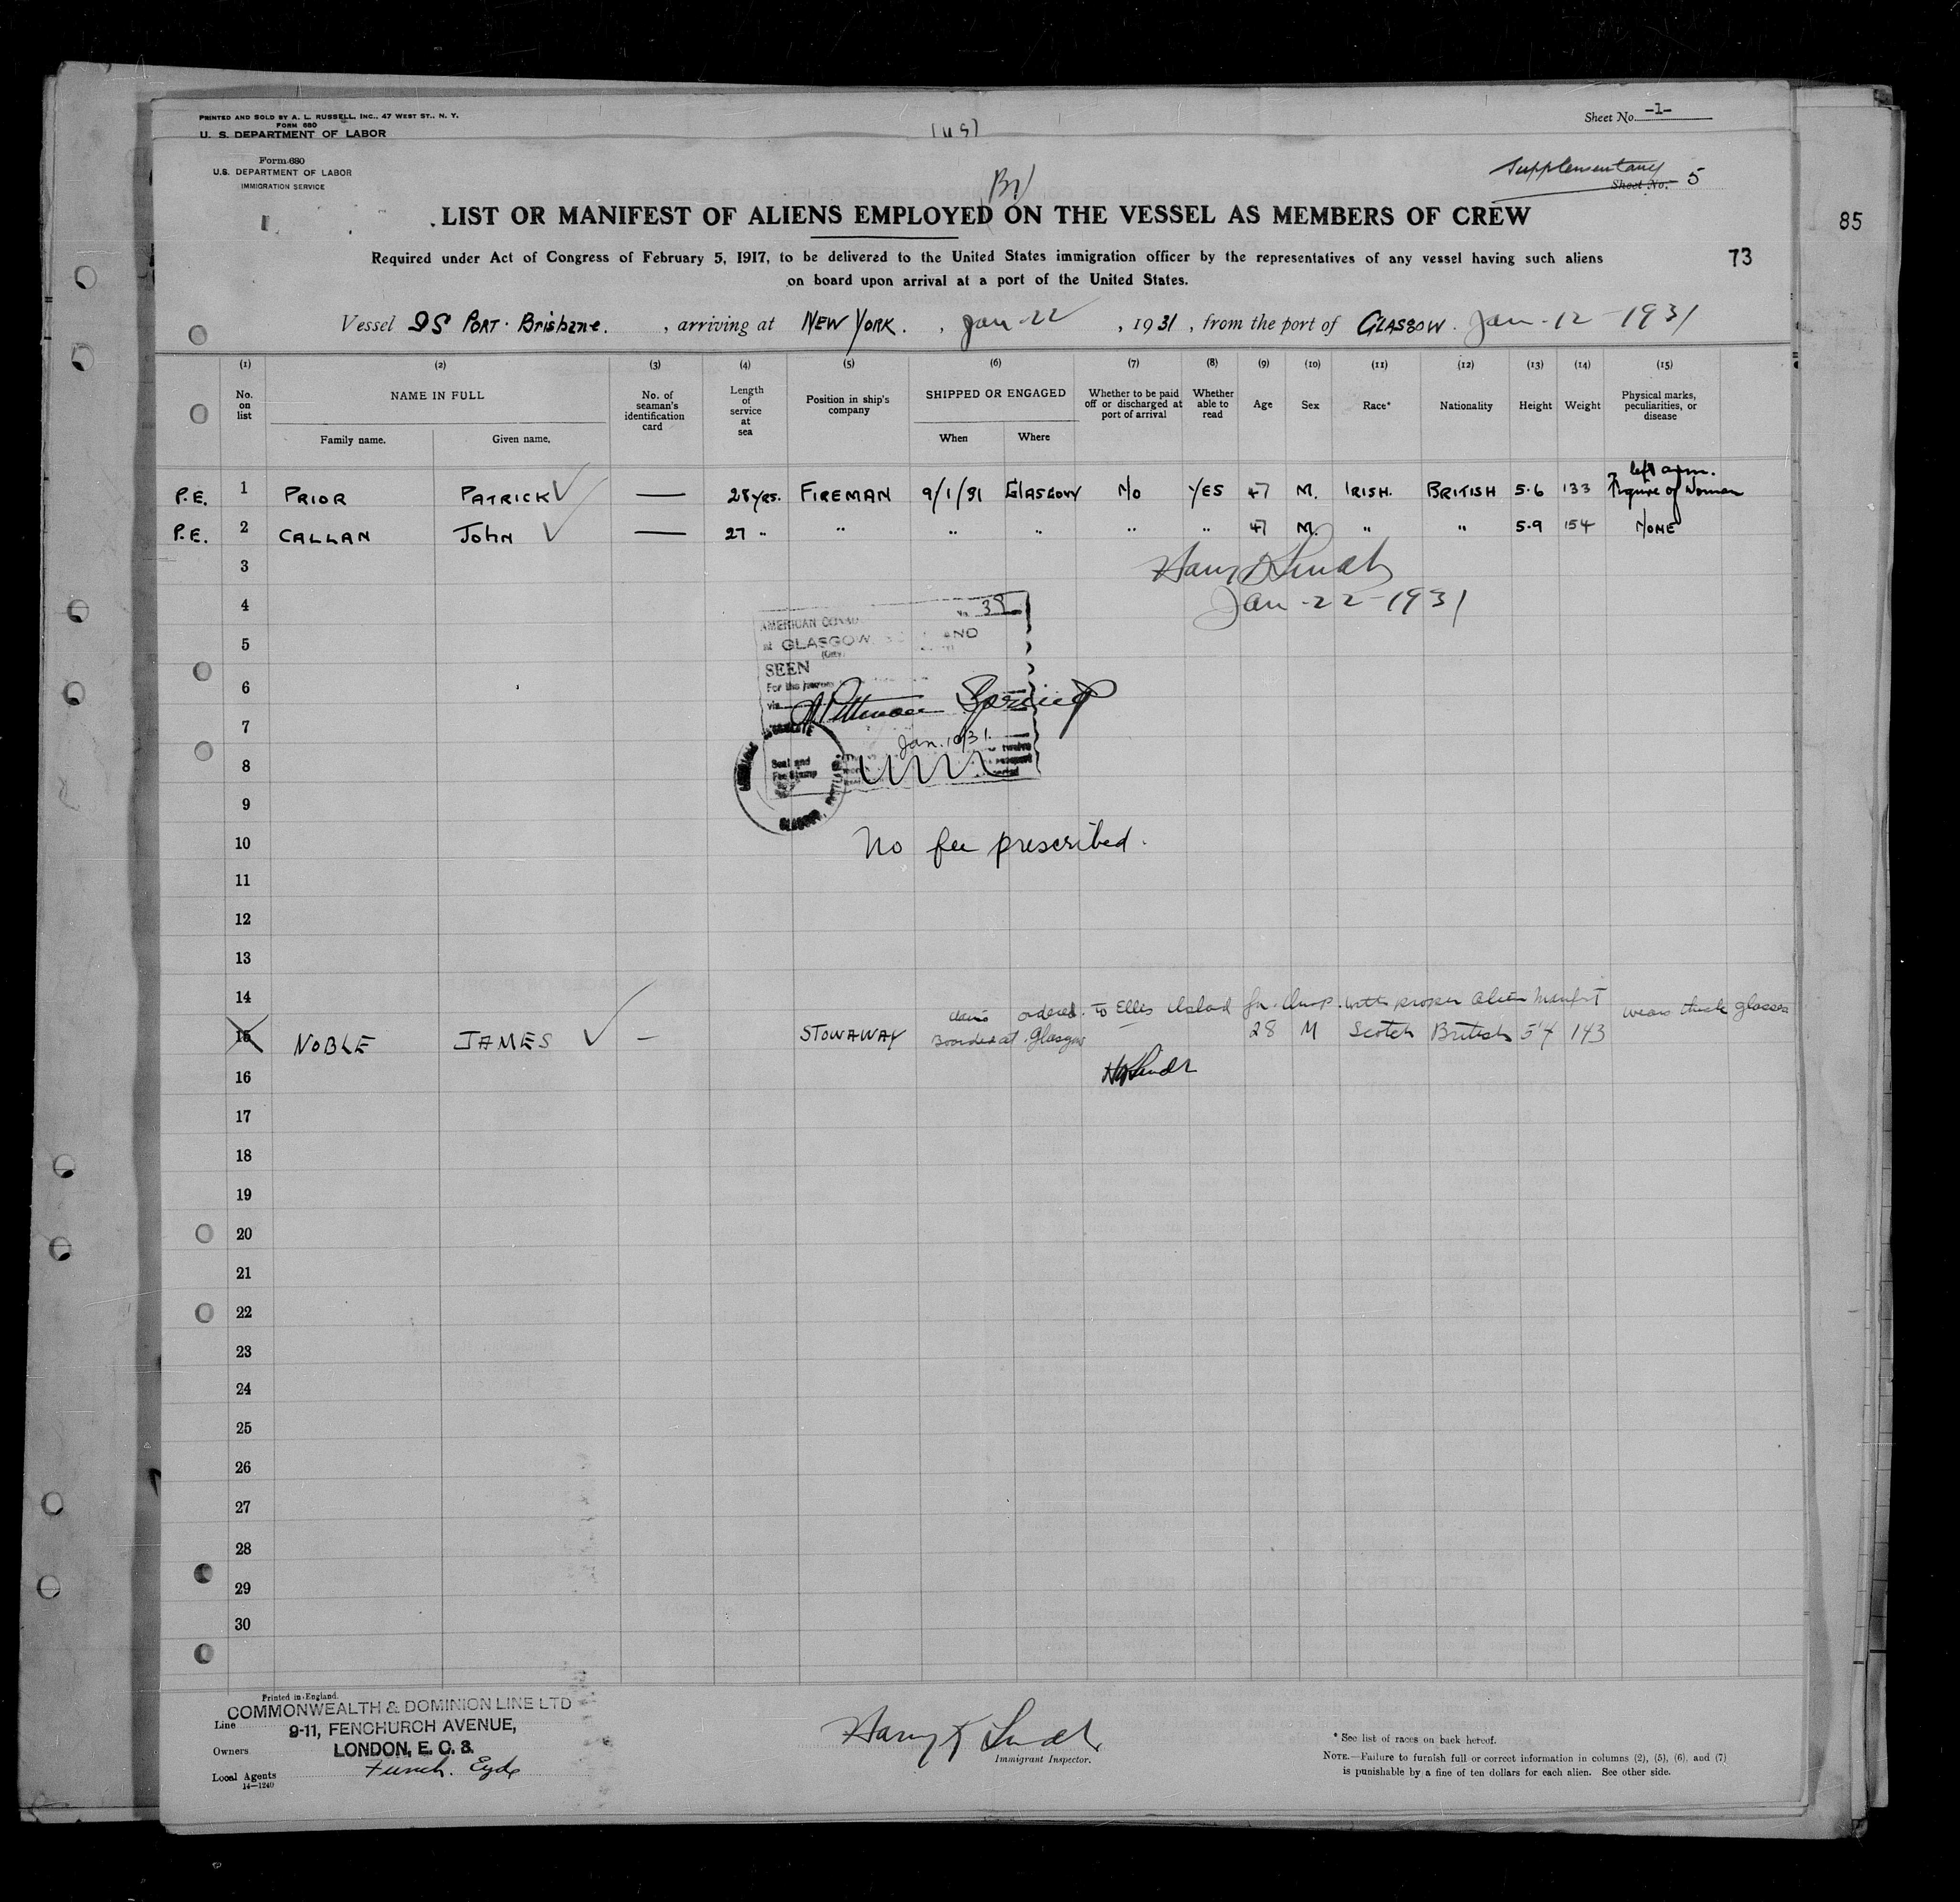 PRINTED AND SOLD BY A. L. RUSSELL, INC., 47 WEST ST., N. Y.
FORM 680
U. S. DEPARTMENT OF LABOR
Sheet No. -1-
Form 680
U.S. DEPARTMENT OF LABOR
IMMIGRATION SERVICE
Supplementary
Sheet No. 5
85
LIST OR MANIFEST OF ALIENS EMPLOYED ON THE VESSEL AS MEMBERS OF CREW
Required under Act of Congress of February 5, 1917, to be delivered to the United States immigration officer by the representatives of any vessel having such aliens
73
on board upon arrival at a port of the United States.
Vessel SS PORT. Brisbane. , arriving at NEW YORK. , Jan-22 , 1931 , from the port of GLASGOW. Jan-12-1931
(1) (2) (3) (4) (5) (6) (7) (8) (9) (10) (11) (12) (13) (14) (15)
No. on list
NAME IN FULL
Family name. Given name.
No. of seaman's identification card
Length of service at sea
Position in ship's company
SHIPPED OR ENGAGED
When Where
Whether to be paid off or discharged at port of arrival
Whether able to read
Age
Sex
Race*
Nationality
Height
Weight
Physical marks, peculiarities, or disease
left arm.
P.E. 1 PRIOR PATRICK — 28 yrs. FIREMAN 9/1/31 GLASGOW No YES 47 M. IRISH. BRITISH 5.6 133 Figure of Woman
P.E. 2 CALLAN John — 27 " " " " " " 47 M. " " 5.9 154 NONE
3
Jan-22-1931
4
No. 39
AMERICAN
5
at GLASGOW
(City)
SEEN
6
For the
via
7
Jan. 10/31.
8
Seal and
Fee Stamp
GLASGOW
9
10 No fee prescribed.
11
12
13
14
ordered to Ellis Island with proper alien manifest
wears thick glasses
15 NOBLE JAMES — STOWAWAY Boarded at Glasgow 28 M Scotch British 5'4 143
16
17
18
19
20
21
22
23
24
25
26
27
28
29
30
Printed in England.
Line COMMONWEALTH & DOMINION LINE LTD
9-11, FENCHURCH AVENUE,
Owners LONDON, E. C. 3.
Local Agents Funch. Edye
14—1240
Immigrant Inspector.
* See list of races on back hereof.
NOTE.—Failure to furnish full or correct information in columns (2), (5), (6), and (7)
is punishable by a fine of ten dollars for each alien. See other side.